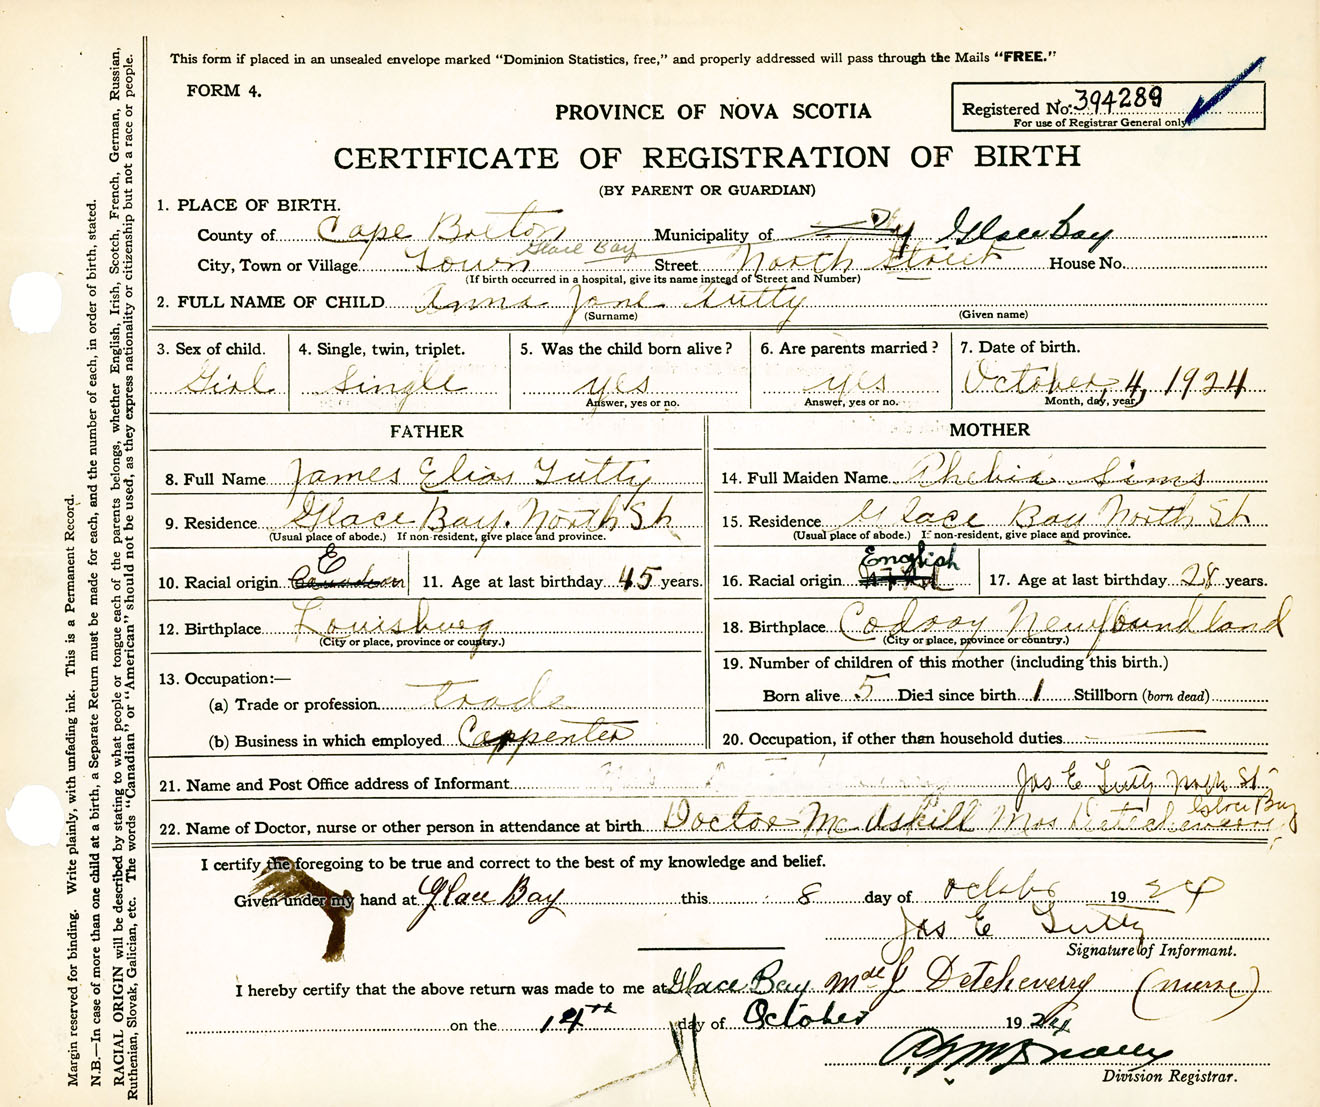 This form if placed in an unsealed envelope marked "Dominion Statistics, free," and properly addressed will pass through the Mails "FREE."
FORM 4.
PROVINCE OF NOVA SCOTIA
Registered No. 394289
For use of Registrar General only
CERTIFICATE OF REGISTRATION OF BIRTH
(BY PARENT OR GUARDIAN)
1. PLACE OF BIRTH.
County of Cape Breton Municipality of Glace Bay
Glace Bay
City, Town or Village Town Street North Street House No.
(If birth occurred in a hospital, give its name instead of Street and Number)
2. FULL NAME OF CHILD Anna Jane Tutty
(Surname) (Given name)
3. Sex of child. 4. Single, twin, triplet. 5. Was the child born alive? 6. Are parents married? 7. Date of birth.
Girl Single yes yes October 4, 1924
Answer, yes or no. Answer, yes or no. Month, day, year
FATHER MOTHER
8. Full Name James Elias Tutty 14. Full Maiden Name Phebia Sims
9. Residence Glace Bay. North St 15. Residence Glace Bay North St
(Usual place of abode.) If non-resident, give place and province. (Usual place of abode.) If non-resident, give place and province.
E English
10. Racial origin Canadian 11. Age at last birthday 45 years. 16. Racial origin 17. Age at last birthday 28 years.
12. Birthplace Louisburg 18. Birthplace Codroy Newfoundland
(City or place, province or country.) (City or place, province or country.)
13. Occupation:— 19. Number of children of this mother (including this birth.)
(a) Trade or profession trade Born alive 5 Died since birth 1 Stillborn (born dead)
(b) Business in which employed Carppenter 20. Occupation, if other than household duties
21. Name and Post Office address of Informant Jas E Tutty North St.
Glace Bay
22. Name of Doctor, nurse or other person in attendance at birth Doctor McAskill Mrs Detcheverry
I certify the foregoing to be true and correct to the best of my knowledge and belief.
Given under my hand at Glace Bay this 8 day of October 1924
Jas E Tutty
Signature of Informant.
I hereby certify that the above return was made to me at Glace Bay Mde J Detcheverry (nurse)
on the 14th day of October 1924
Division Registrar.
Margin reserved for binding. Write plainly, with unfading ink. This is a Permanent Record.
N.B.—In case of more than one child at a birth, a Separate Return must be made for each, and the number of each, in order of birth, stated.
RACIAL ORIGIN will be described by stating to what people or tongue each of the parents belongs, whether English, Irish, Scotch, French, German, Russian,
Ruthenian, Slovak, Galician, etc. The words "Canadian" or "American" should not be used, as they express nationality or citizenship but not a race or people.